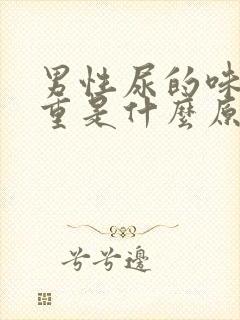 男性尿的味
重是什麼原
兮兮邊